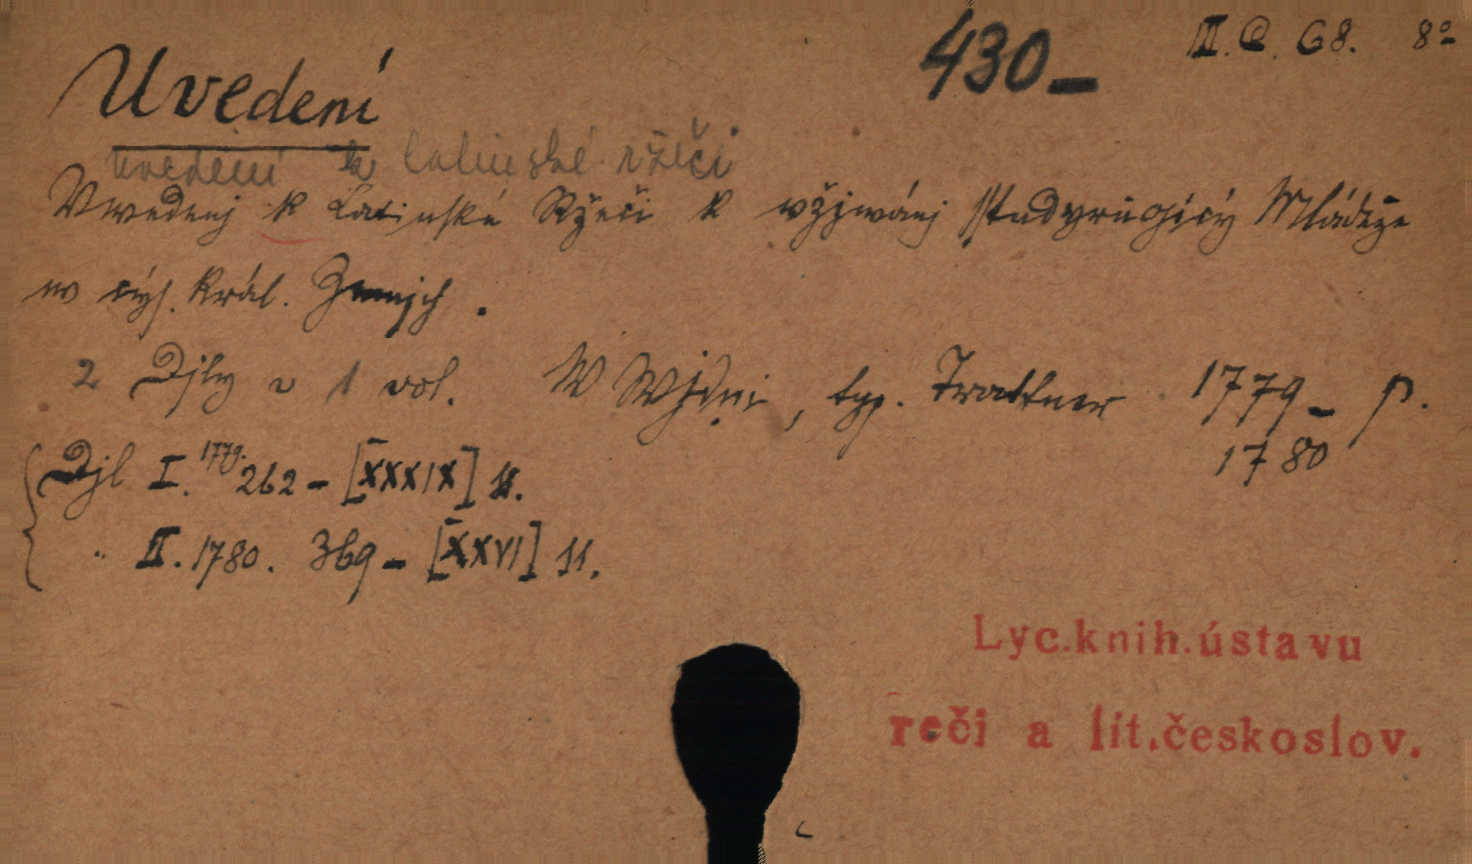 430- II. C. 68. 8º
Uvedení
uvedení k latinské ržeči
Vwedenj k Latinské Ržeči k vžjwánj Studyrugjcý Mládeže
w cýs. Král. Zemjch.
2 Djly v 1 vol. W Wjdni, typ. Trattner 1779- p.
1780
Djl I. 1779. 262-[XXXIX] 11.
" II. 1780. 369-[XXVI] 11.
Lyc.knih.ústavu
reči a lit.českoslov.